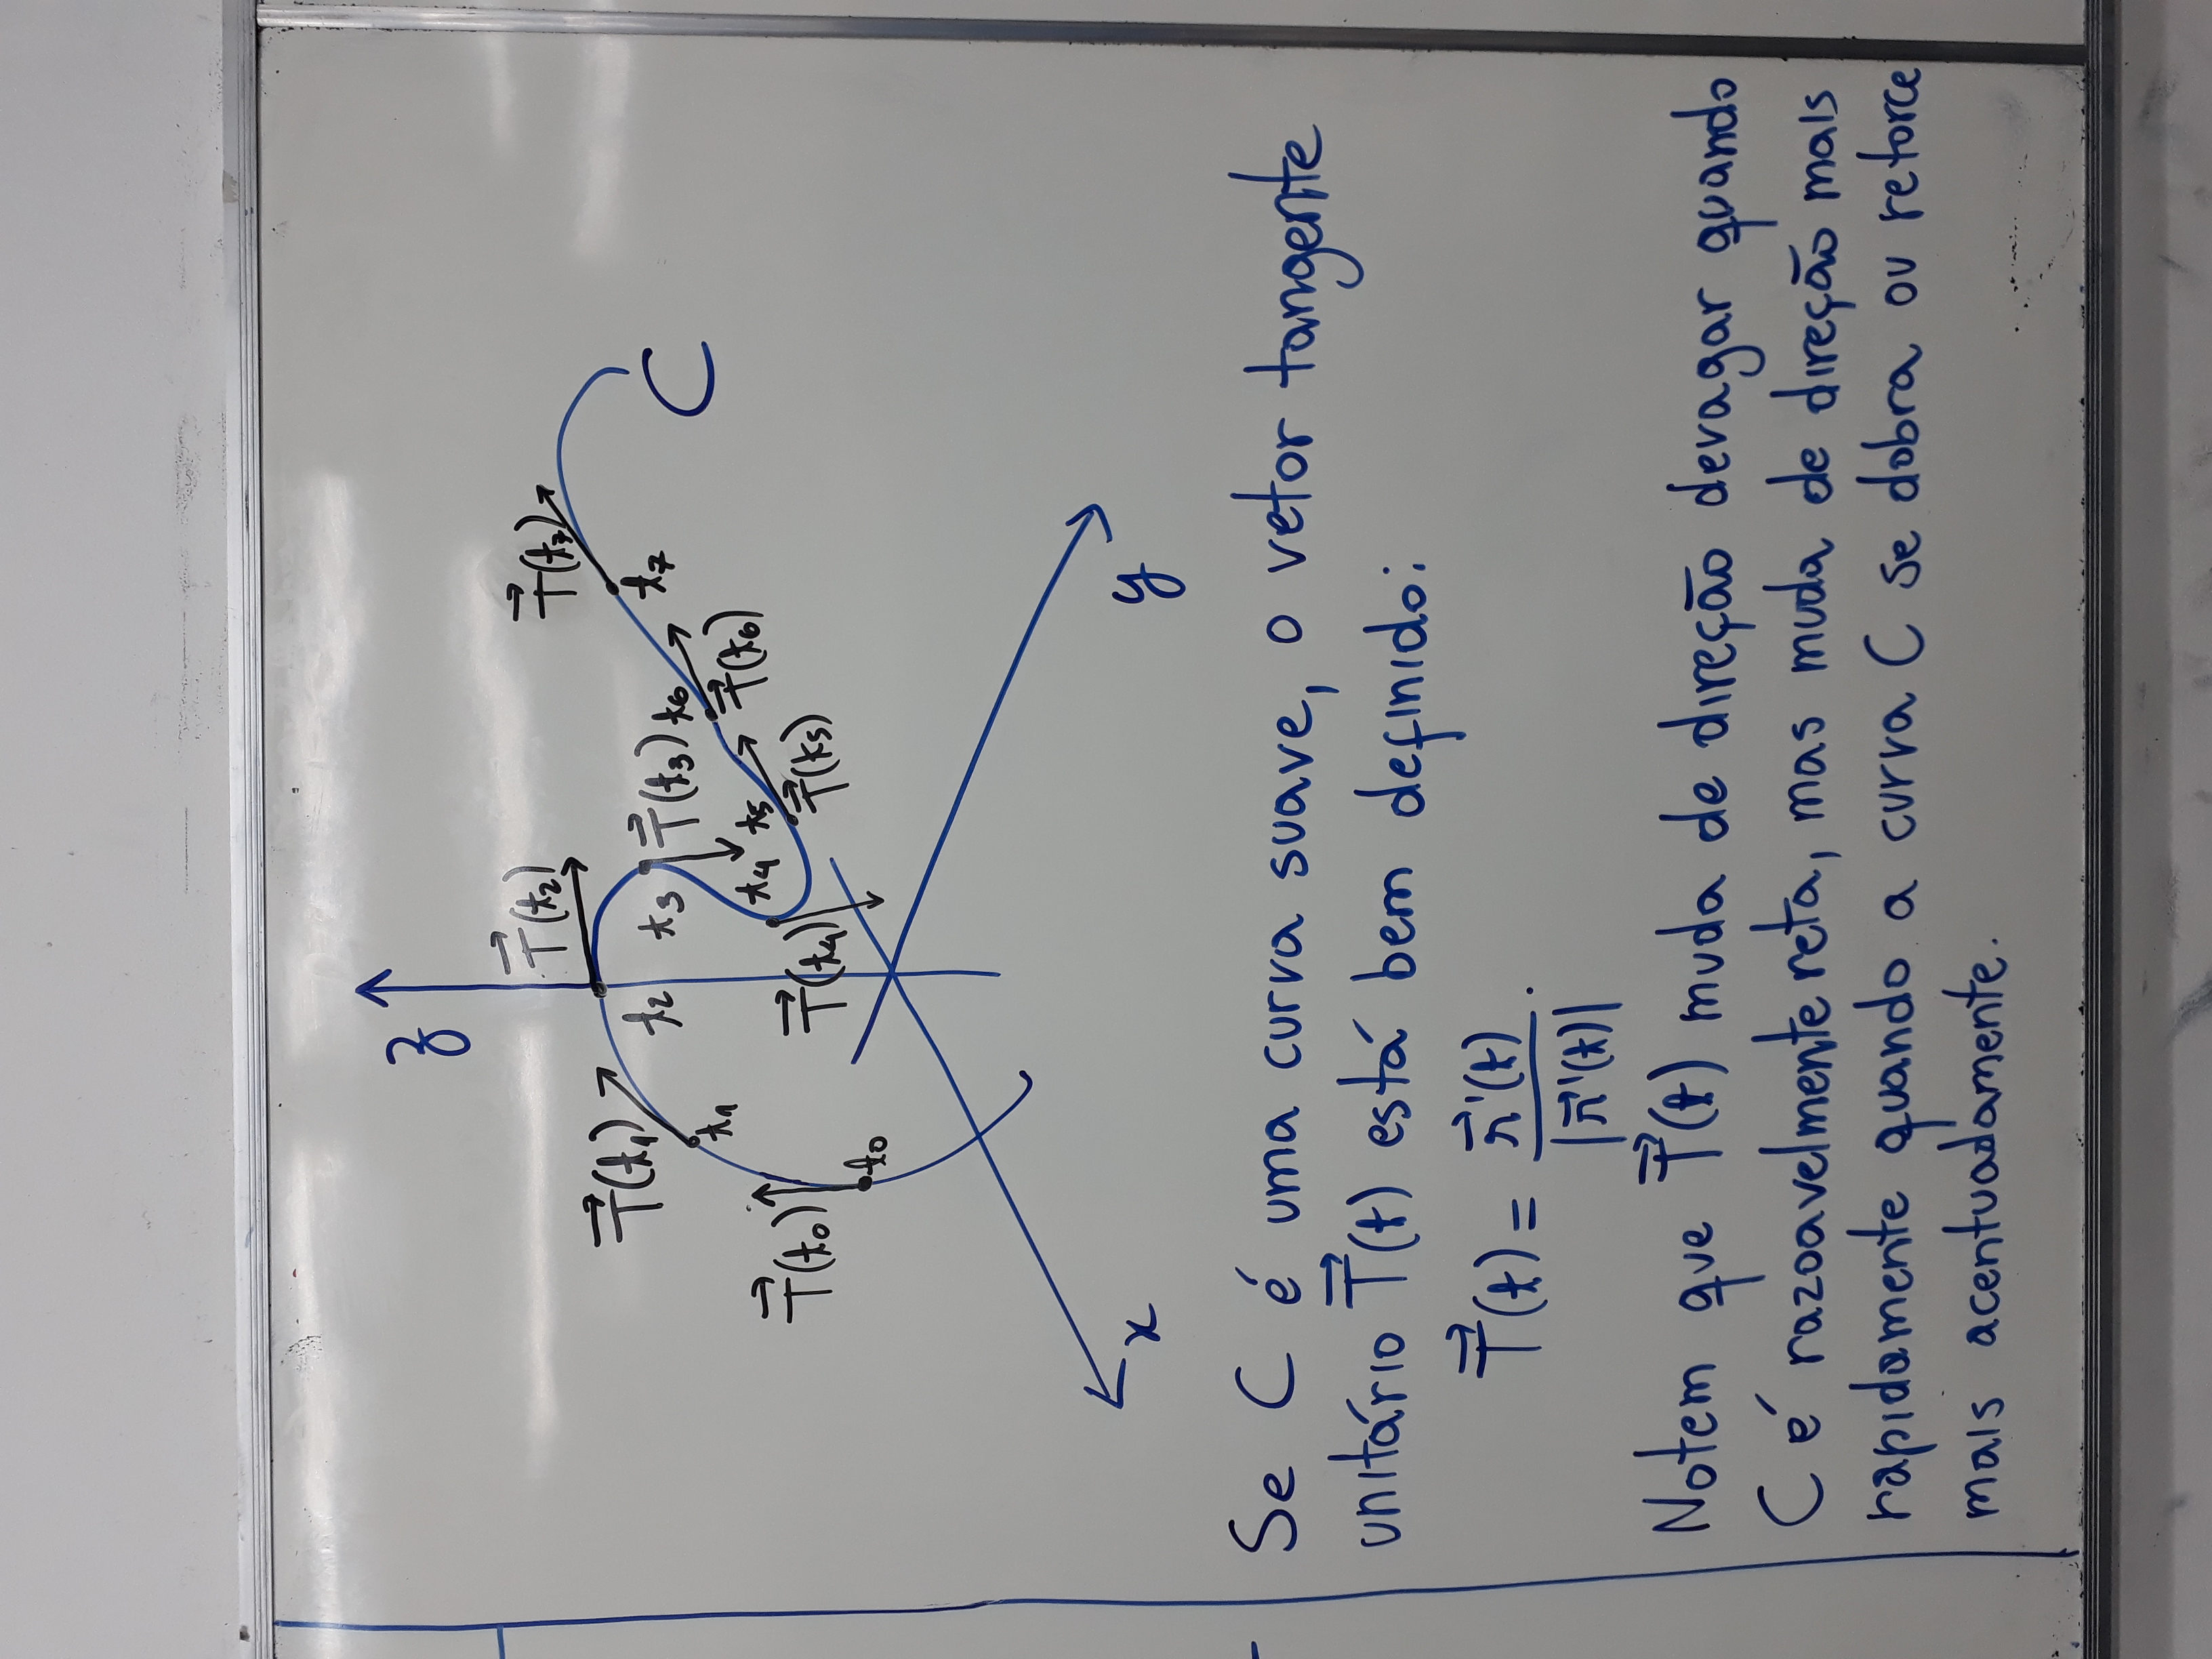 z
T⃗(t₂)
T⃗(t₇)
T⃗(t₁)
t₂
t₃
T⃗(t₃)
t₆
t₇
C
t₁
t₄
t₅
T⃗(t₆)
T⃗(t₀)
T⃗(t₄)
T⃗(t₅)
t₀
x
y
Se C é uma curva suave, o vetor tangente
unitário T⃗(t) está bem definido:
T⃗(t) = r⃗'(t) / |r⃗'(t)| .
Notem que T⃗(t) muda de direção devagar quando
C é razoavelmente reta, mas muda de direção mais
rapidamente quando a curva C se dobra ou retorce
mais acentuadamente.